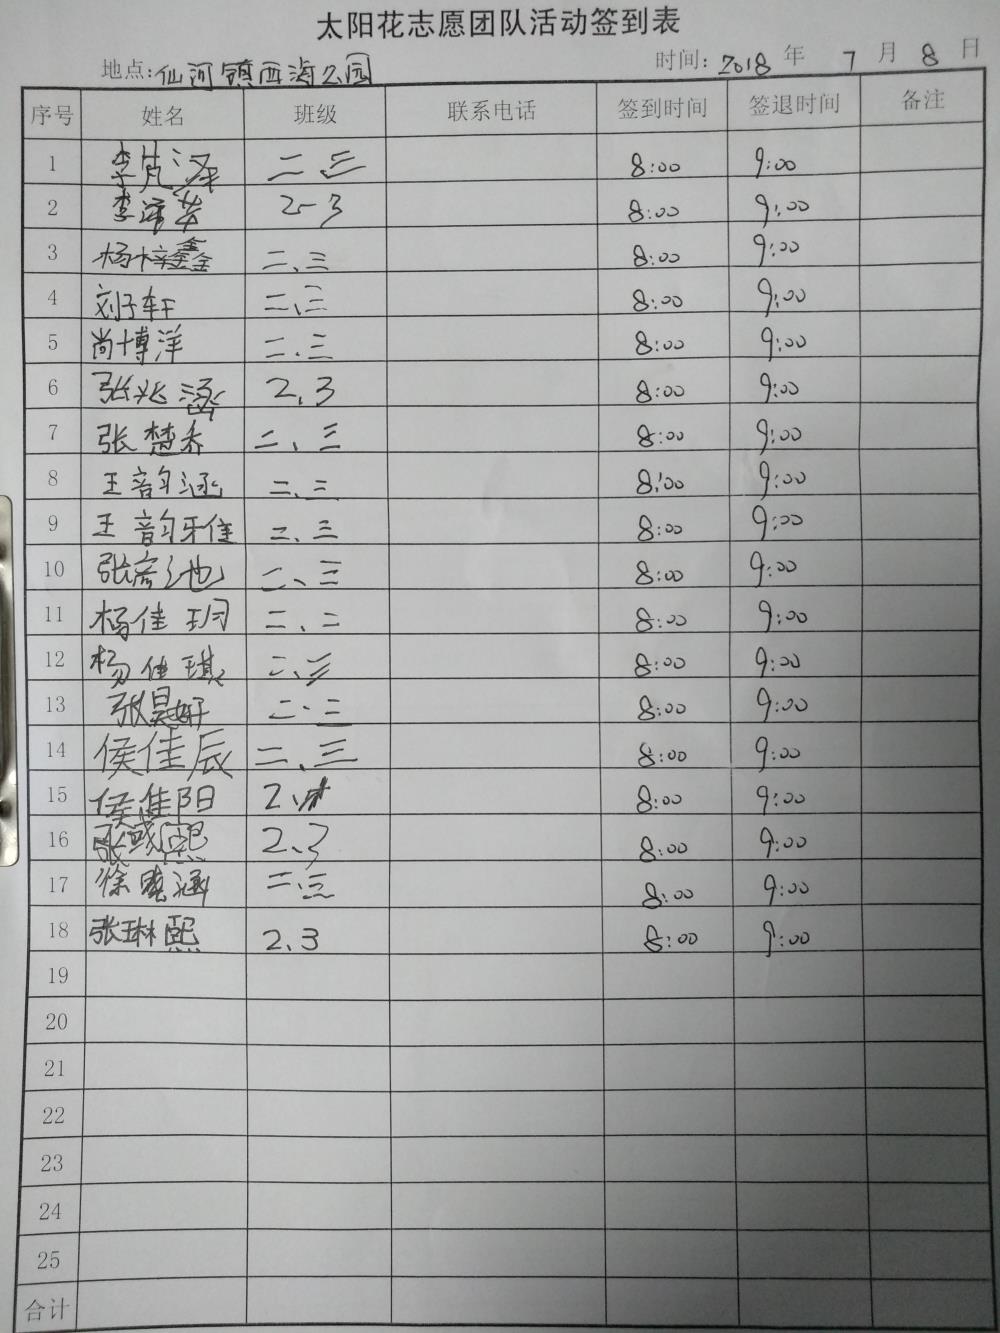 太阳花志愿团队活动签到表
地点:仙河镇西海公园 时间:2018年7月8日
序号 姓名 班级 联系电话 签到时间 签退时间 备注
1 李梵泽 二 三 8:00 9:00
2 李 2-3 8:00 9:00
3 杨梓鑫 二、三 8:00 9:00
4 刘子轩 二、三 8:00 9:00
5 尚博洋 二、三 8:00 9:00
6 张兆涵 2、3 8:00 9:00
7 张楚乔 二、三 8:00 9:00
8 王韵涵 二、三 8:00 9:00
9 王韵雅 二、三 8:00 9:00
10 张 二、三 8:00 9:00
11 杨佳玥 二、二 8:00 9:00
12 杨佳琪 二、三 8:00 9:00
13 张昊妍 二、三 8:00 9:00
14 侯佳辰 二、三 8:00 9:00
15 侯佳阳 2、 8:00 9:00
16 张彧熙 2、3 8:00 9:00
17 徐晓涵 二、三 8:00 9:00
18 张琳熙 2、3 8:00 9:00
19
20
21
22
23
24
25
合计